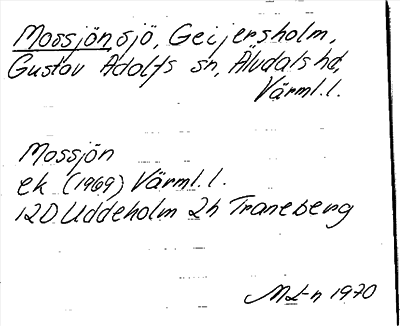 Mossjön, sjö, Geijersholm,
Gustav Adolfs sn, Älvdals hd,
Värml.l.
Mossjön
ek (1969) Värml.l.
12D Uddeholm 2h Traneberg
M£-n 1970